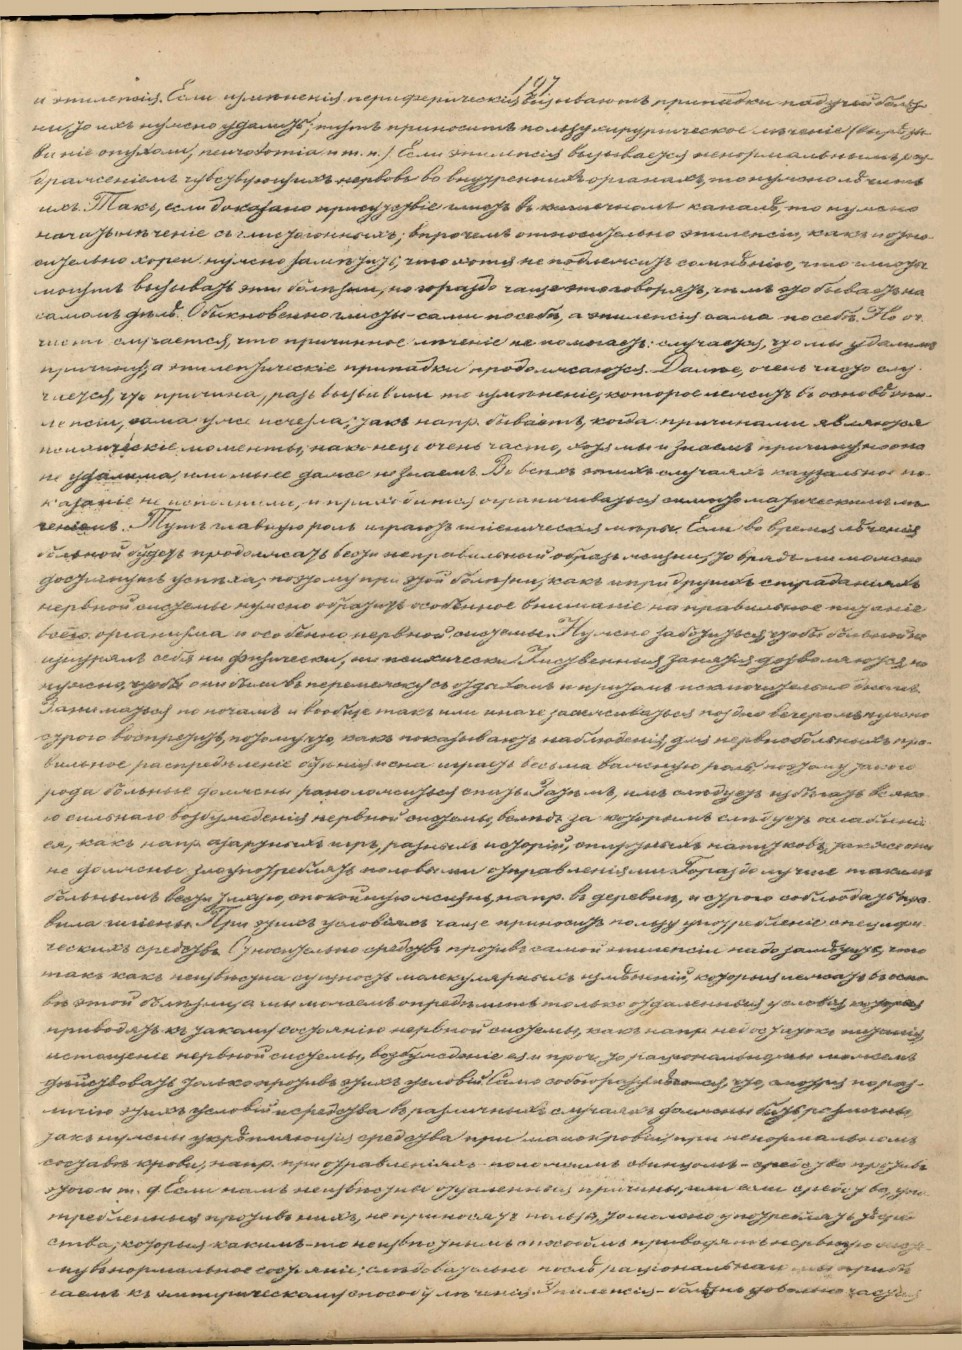 197
и эпилепсія. Если измѣненія периферическія вызываютъ припадки падучей болѣз-
ни, то ихъ нужно удалить; тутъ приноситъ пользу хирургическое лѣченіе (вырѣзы-
ваніе опухоли, neurotomia и т. п.) Если эпилепсія вызывается ненормальнымъ раз-
драженіемъ чувствующихъ нервовъ во внутреннихъ органахъ, то нужно лѣчить
ихъ. Такъ, если доказано присутствіе глистъ въ кишечномъ каналѣ, то нужно
начать лѣченіе съ глистогонныхъ; впрочемъ относительно эпилепсіи, какъ и отно-
сительно хореи нужно замѣтить, что хотя не подлежитъ сомнѣнію, что глисты
могутъ вызывать эти болѣзни, но гораздо чаще это говорятъ, чѣмъ это бываетъ на
самомъ дѣлѣ. Обыкновенно глисты - сами по себѣ, а эпилепсія сама по себѣ. Но от.
часто случается, что причинное лѣченіе не помогаетъ: случается, что мы удалимъ
причину, а эпилептическіе припадки продолжаются. Далѣе, очень часто слу-
чается, что причина, разъ вызвавши то измѣненіе, которое лежитъ въ основѣ эпи-
лепсіи, сама уже исчезла; такъ напр. бываетъ, когда причинами являются
психическіе моменты; наконецъ очень часто, хотя мы и знаемъ причину, но она
не удалима, или мы ее даже не знаемъ. Во всѣхъ этихъ случаяхъ каузальное по-
казаніе не исполнимо, и приходится ограничиваться симптоматическимъ лѣ-
ченіемъ. Тутъ главную роль играютъ гигіеническія мѣры. Если во время лѣченія
больной будетъ продолжать вести неправильный образъ жизни, то врядъ ли можно
достигнуть успѣха; поэтому при этой болѣзни, какъ и при другихъ страданіяхъ
нервной системы нужно обратить особенное вниманіе на правильное питаніе
всего организма и особенно нервной системы. Нужно заботиться, чтобы больной не
изнурялъ себя ни физически, ни психически. Умственныя занятія дозволяются, но
нужно, чтобы они были въ перемежку съ отдыхомъ и притомъ исключительно днемъ.
Заниматься по ночамъ и вообще такъ или иначе засиживаться поздно вечеромъ нужно
строго воспретить, потому что, какъ показываютъ наблюденія, для нервнобольныхъ пра-
вильное распредѣленіе бдѣнія и сна играетъ весьма важную роль; поэтому такого
рода больные должны рано ложиться спать. Затѣмъ, имъ слѣдуетъ избѣгать всяка-
го сильнаго возбужденія нервной системы, вслѣдъ за которымъ слѣдуетъ ослабленіе
ея, какъ напр. азартныхъ игръ, разныхъ исторій, спиртныхъ напитковъ; также они
не должны злоупотреблять половыми отправленіями. Гораздо лучше такимъ
больнымъ вести тихую, спокойную жизнь, напр. въ деревнѣ, и строго соблюдать пра-
вила гигіены. При этихъ условіяхъ чаще приноситъ пользу употребленіе специфи-
ческихъ средствъ. Относительно средствъ противъ самой эпилепсіи надо замѣтить, что
такъ какъ неизвѣстна сущность молекулярныхъ измѣненій, которыя лежатъ въ осно-
вѣ этой болѣзни, а мы можемъ опредѣлить только отдаленныя условія, которыя
приводятъ къ такому состоянію нервной системы, какъ напр. недостатокъ питанія,
истощеніе нервной системы, возбужденіе ея и проч., то раціонально мы можемъ
дѣйствовать только противъ этихъ условій. Само собою разумѣется, что, смотря по раз-
личію этихъ условій и средства въ различныхъ случаяхъ должны быть различны,
такъ нужны укрѣпляющія средства при малокровіи, при ненормальномъ
составѣ крови, напр. при отравленіяхъ - положимъ свинцомъ - средства противъ
этого и т. д. Если намъ неизвѣстны отдаленныя причины, или если средства, упо-
требленныя противъ нихъ, не приносятъ пользы, то можно употреблять тѣ сред-
ства, которыя какимъ-то неизвѣстнымъ способомъ приводятъ нервную систе-
му въ нормальное состояніе; слѣдовательно послѣ раціональнаго мы прибѣ-
гаемъ къ эмпирическому способу лѣченія. Эпилепсія - болѣзнь довольно частая